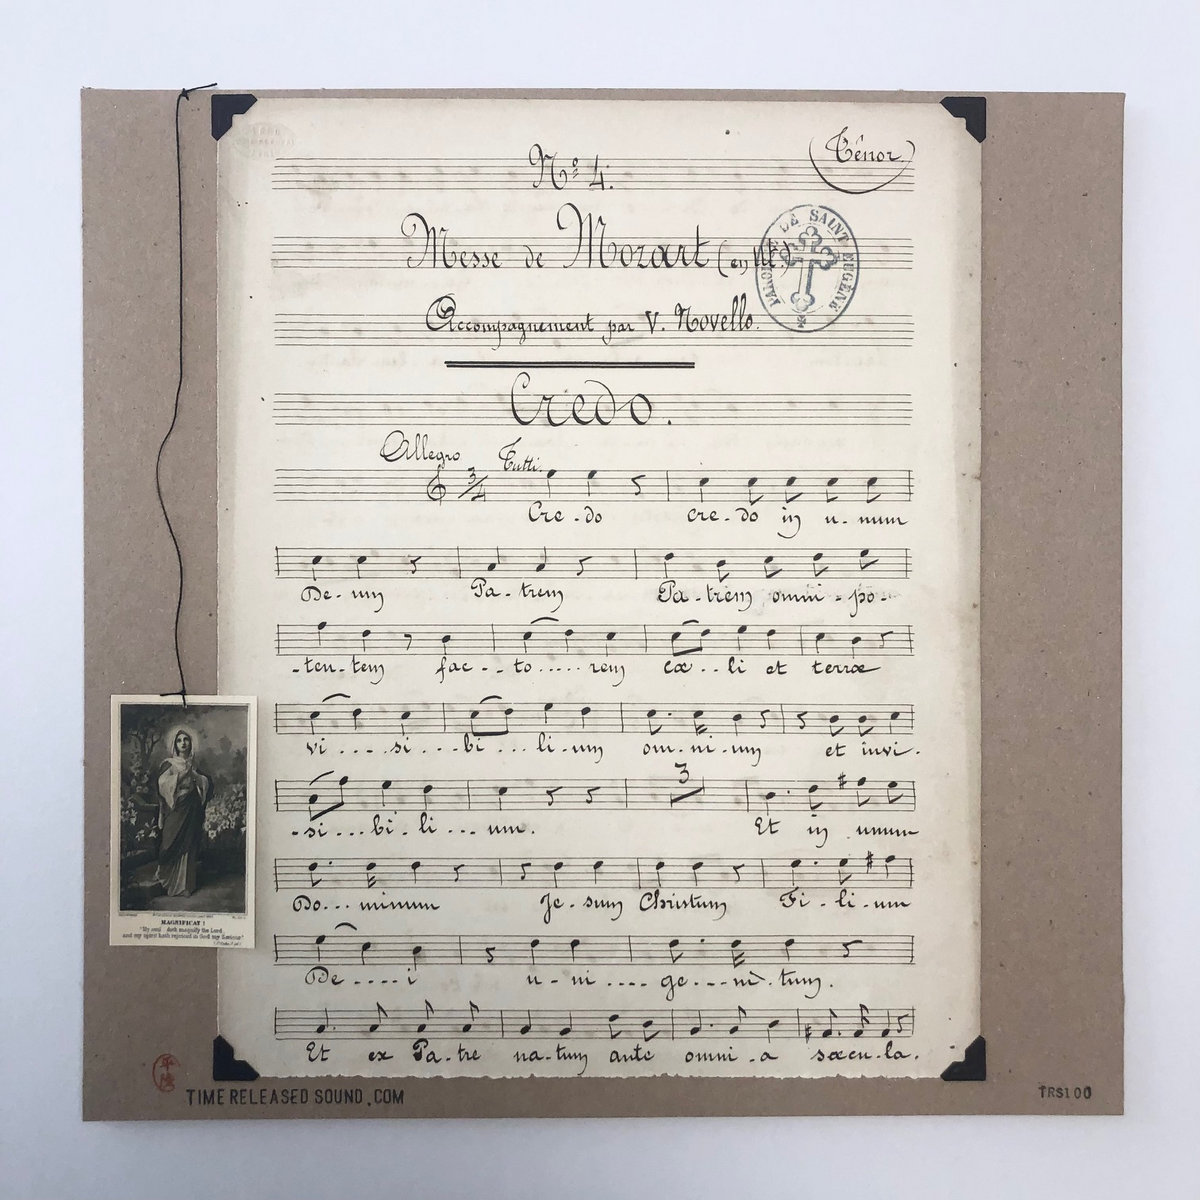 Nº 4.
(Ténor.)
Messe de Mozart (en ut.)
PAROISSE DE SAINT EUGÈNE
Accompagnement par V. Novello.
Credo.
Allegro Tutti.
3/4
Cre-do cre-do in u-num
De-um Pa-trem Pa-trem omni-po-
-ten-tem fac--to.....rem cœ..li et terræ
vi....si...bi...li-um om-ni-um et invi.
3
-si...bi.li...um. Et in unum
Do...minum Je-sum Christum Fi-li-um
De....i u-ni....ge...ni.tum.
Et ex Pa-tre na-tum ante omni-a sæcu-la.
MAGNIFICAT!
"My soul doth magnify the Lord
and my spirit hath rejoiced in God my Saviour"
TIME RELEASED SOUND.COM
TRS100